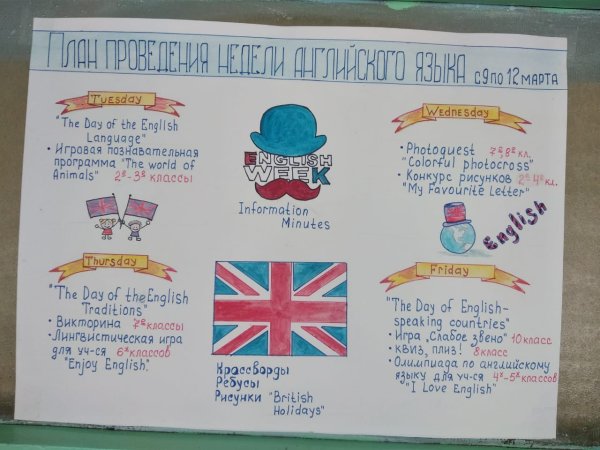 План проведения недели английского языка с 9 по 12 марта
Tuesday
"The Day of the English
Language"
• Игровая познавательная
программа "The world of
Animals" 2е-3е классы
ENGLISH
WEEK
Information
Minutes
Wednesday
• Photoquest 7е,8е кл.
"Colorful photocross"
• Конкурс рисунков 2е-4е кл.
"My Favourite Letter"
English
Thursday
"The Day of the English
Traditions"
• Викторина 7е классы
• Лингвистическая игра
для уч-ся 6х классов
"Enjoy English".
Кроссворды
Ребусы
Рисунки "British
Holidays"
Friday
"The Day of English-
speaking countries"
• Игра „Слабое звено" 10 класс
• КВИЗ, ПЛИЗ! 8 класс
• Олимпиада по английскому
языку для уч-ся 4х-5х классов
"I Love English"